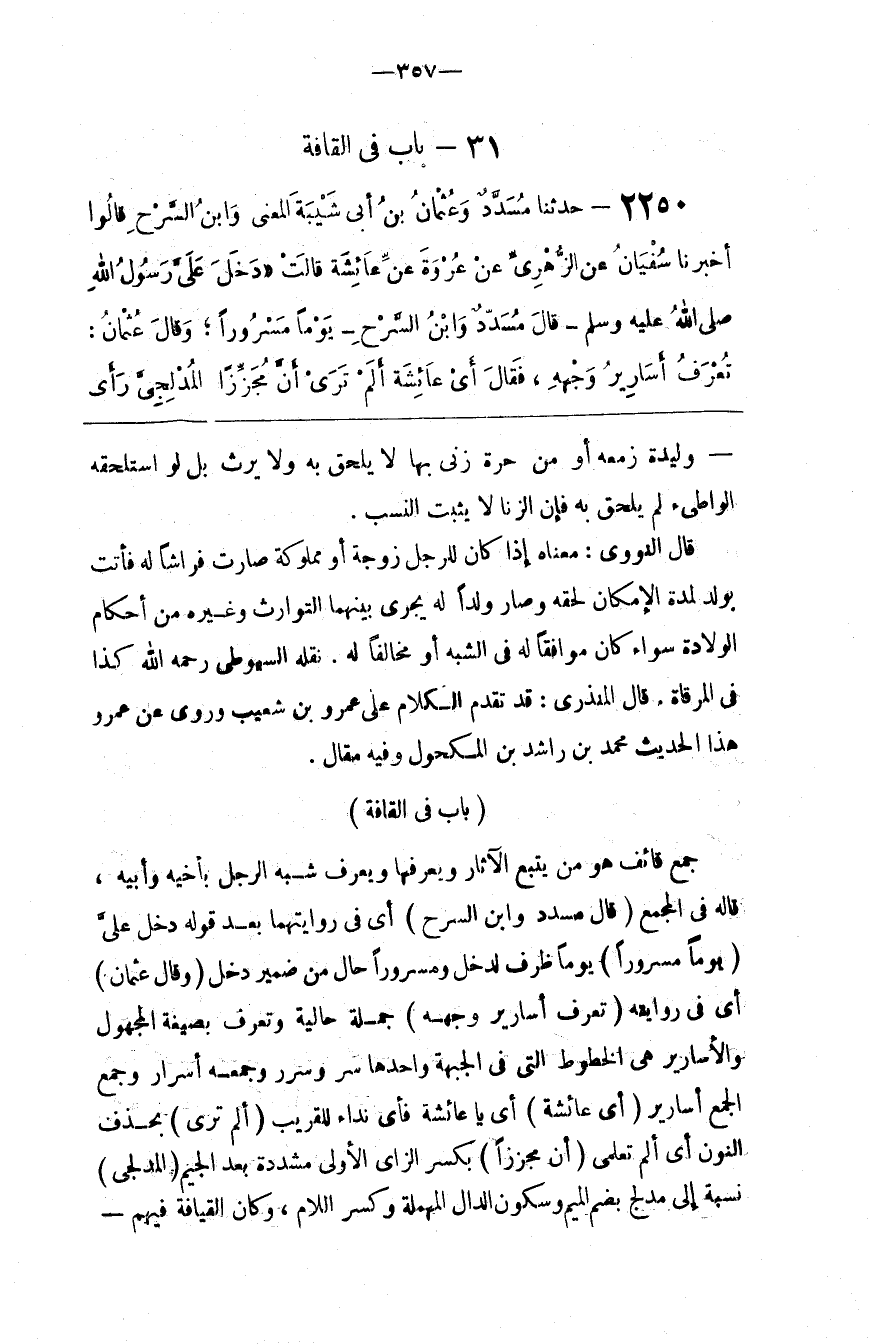 —٣٥٧—
٣١ – باب فى القافة
٢٢٥٠ – حدثنا مُسَدَّدٌ وَعُثْمَانُ بنُ أبى شَيْبَةَ المعنى وَابنُ السَّرْحِ قالُوا
أخبرنا سُفْيَانُ عن الزُّهْرِىِّ عنْ عُرْوَةَ عنْ عَائِشَة قالَتْ «دَخَلَ عَلَىَّ رَسُولُ اللهِ
صلى اللهُ عليه وسلم – قالَ مُسَدَّدٌ وَابْنُ السَّرْحِ – يَوْماً مَسْرُوراً ؛ وَقالَ عُثْمَانُ :
تُعْرَفُ أَسَارِيرُ وَجْهِهِ ، فَقَالَ أَىْ عَائِشَة أَلَمْ تَرَىْ أَنَّ مُجَزِّزًا المُدْلِجِىَّ رَأى
— وليدة زمعه أو من حرة زنى بها لا يلحق به ولا يرث بل لو استلحقه
الواطىء لم يلحق به فإن الزنا لا يثبت النسب .
قال النووى : معناه إذا كان للرجل زوجة أو مملوكة صارت فراشاً له فأتت
بولد لمدة الإمكان لحقه وصار ولداً له يجرى بينهما التوارث وغيره من أحكام
الولادة سواء كان موافقاً له فى الشبه أو مخالفاً له . نقله السيوطى رحمه الله كذا
فى المرقاة . قال المنذرى : قد تقدم الكلام على عمرو بن شعيب وروى عن عمرو
هذا الحديث محمد بن راشد بن المكحول وفيه مقال .
( باب فى القافة )
جمع قائف هو من يتبع الآثار ويعرفها ويعرف شبه الرجل بأخيه وأبيه ،
قاله فى المجمع ( قال مسدد وابن السرح ) أى فى روايتهما بعد قوله دخل علىَّ
( يوماً مسروراً ) يوماً ظرف لدخل ومسروراً حال من ضمير دخل ( وقال عثمان )
أى فى روايته ( تعرف أسارير وجهه ) جملة حالية وتعرف بصيغة المجهول
والأسارير هى الخطوط التى فى الجبهة واحدها سر وسرر وجمعه أسرار وجمع
الجمع أسارير ( أى عائشة ) أى يا عائشة فأى نداء للقريب ( ألم ترى ) بحذف
النون أى ألم تعلمى ( أن مجززاً ) بكسر الزاى الأولى مشددة بعد الجيم ( المدلجى )
نسبة إلى مدلج بضم الميم وسكون الدال المهملة وكسر اللام ، وكان القيافة فيهم —